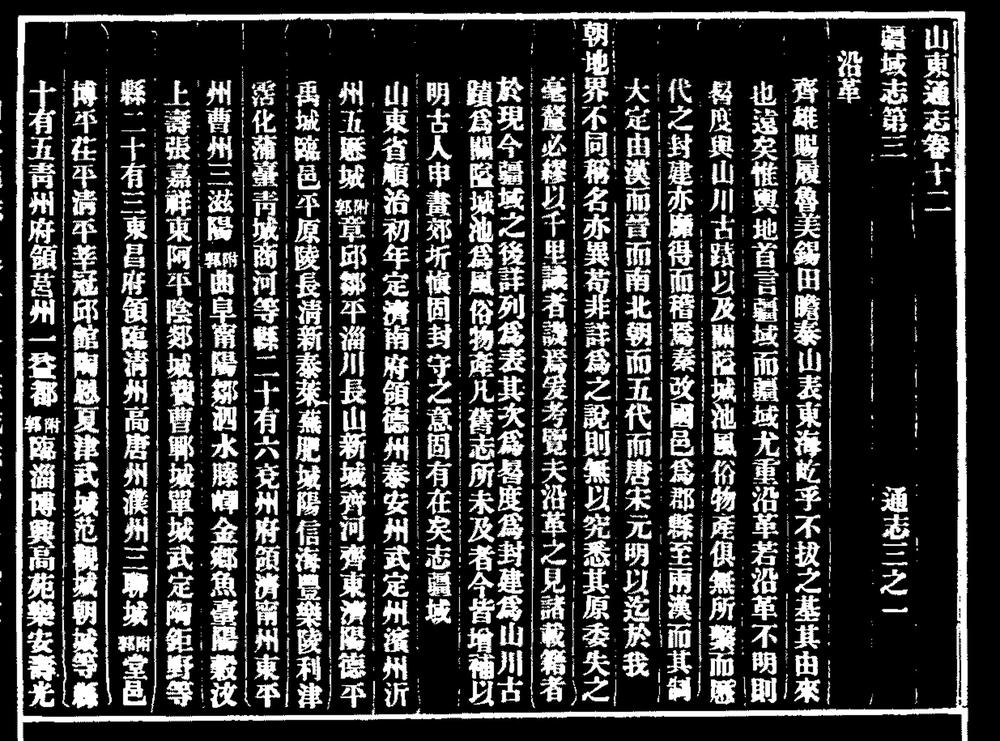 山東通志卷十二
疆域志第三　通志三之一
沿革
齊雄賜履魯美錫田瞻泰山表東海屹乎不拔之基其由來
也遠矣惟輿地首言疆域而疆域尤重沿革若沿革不明則
晷度與山川古蹟以及關隘城池風俗物產俱無所繫而歷
代之封建亦靡得而稽焉秦改國邑爲郡縣至兩漢而其制
大定由漢而晉而南北朝而五代而唐宋元明以迄於我
朝地界不同稱名亦異苟非詳爲之說則無以究悉其原委失之
毫釐必繆以千里識者譏焉爰考覽夫沿革之見諸載籍者
於現今疆域之後詳列爲表其次爲晷度爲封建爲山川古
蹟爲關隘城池爲風俗物產凡舊志所未及者今皆增補以
明古人申畫郊圻愼固封守之意固有在矣志疆域
山東省順治初年定濟南府領德州泰安州武定州濱州沂
州五歷城附郭章邱鄒平淄川長山新城齊河齊東濟陽德平
禹城臨邑平原陵長淸新泰萊蕪肥城陽信海豐樂陵利津
霑化蒲臺靑城商河等縣二十有六兗州府領濟甯州東平
州曹州三滋陽附郭曲阜甯陽鄒泗水滕嶧金鄉魚臺陽穀汶
上壽張嘉祥東阿平陰郯城費曹鄆城單城武定陶鉅野等
縣二十有三東昌府領臨淸州高唐州濮州三聊城附郭堂邑
博平茌平淸平莘冠邱館陶恩夏津武城范觀城朝城等縣
十有五靑州府領莒州一益都附郭臨淄博興高苑樂安壽光